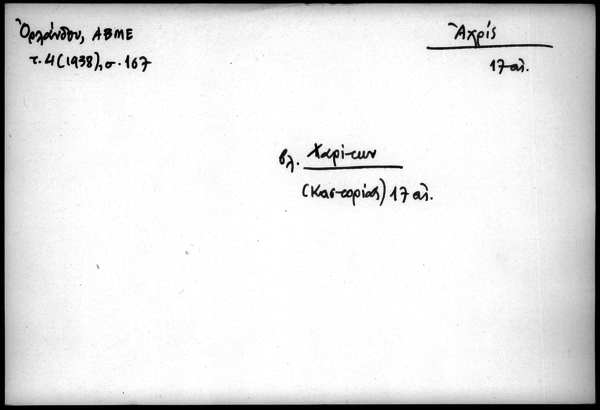 Ὀρλάνδου, ΑΒΜΕ
τ. 4 (1938), σ. 167
Ἀχρίς
17 αἰ.
βλ. Χαρίτων
(Καστορίας) 17 αἰ.